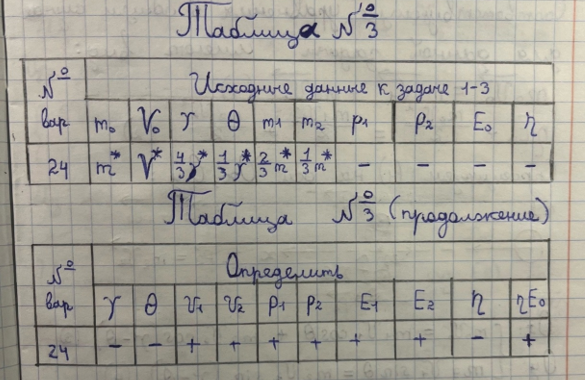 Таблица №3
№ вар Исходные данные к задаче 1-3
m₀ V₀ γ θ m₁ m₂ p₁ p₂ E₀ η
24 m* V* 4/3 γ* 1/3 γ* 2/3 m* 1/3 m* – – – –
Таблица №3 (продолжение)
№ вар Определить
γ θ v₁ v₂ p₁ p₂ E₁ E₂ η ηE₀
24 – – + + + + + + – +